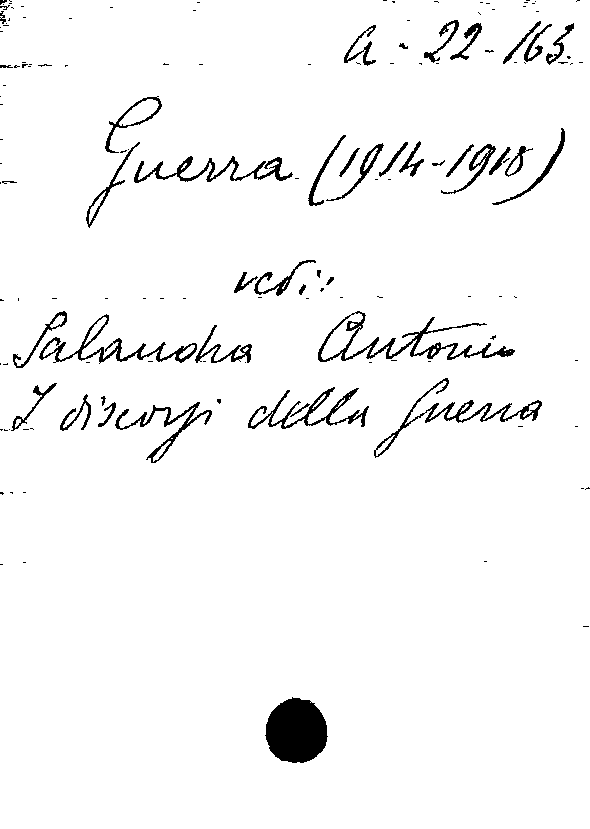 a - 22 - 163.
Guerra (1914-1918)
vedi:
Salandra Antonio
I discorsi della guerra